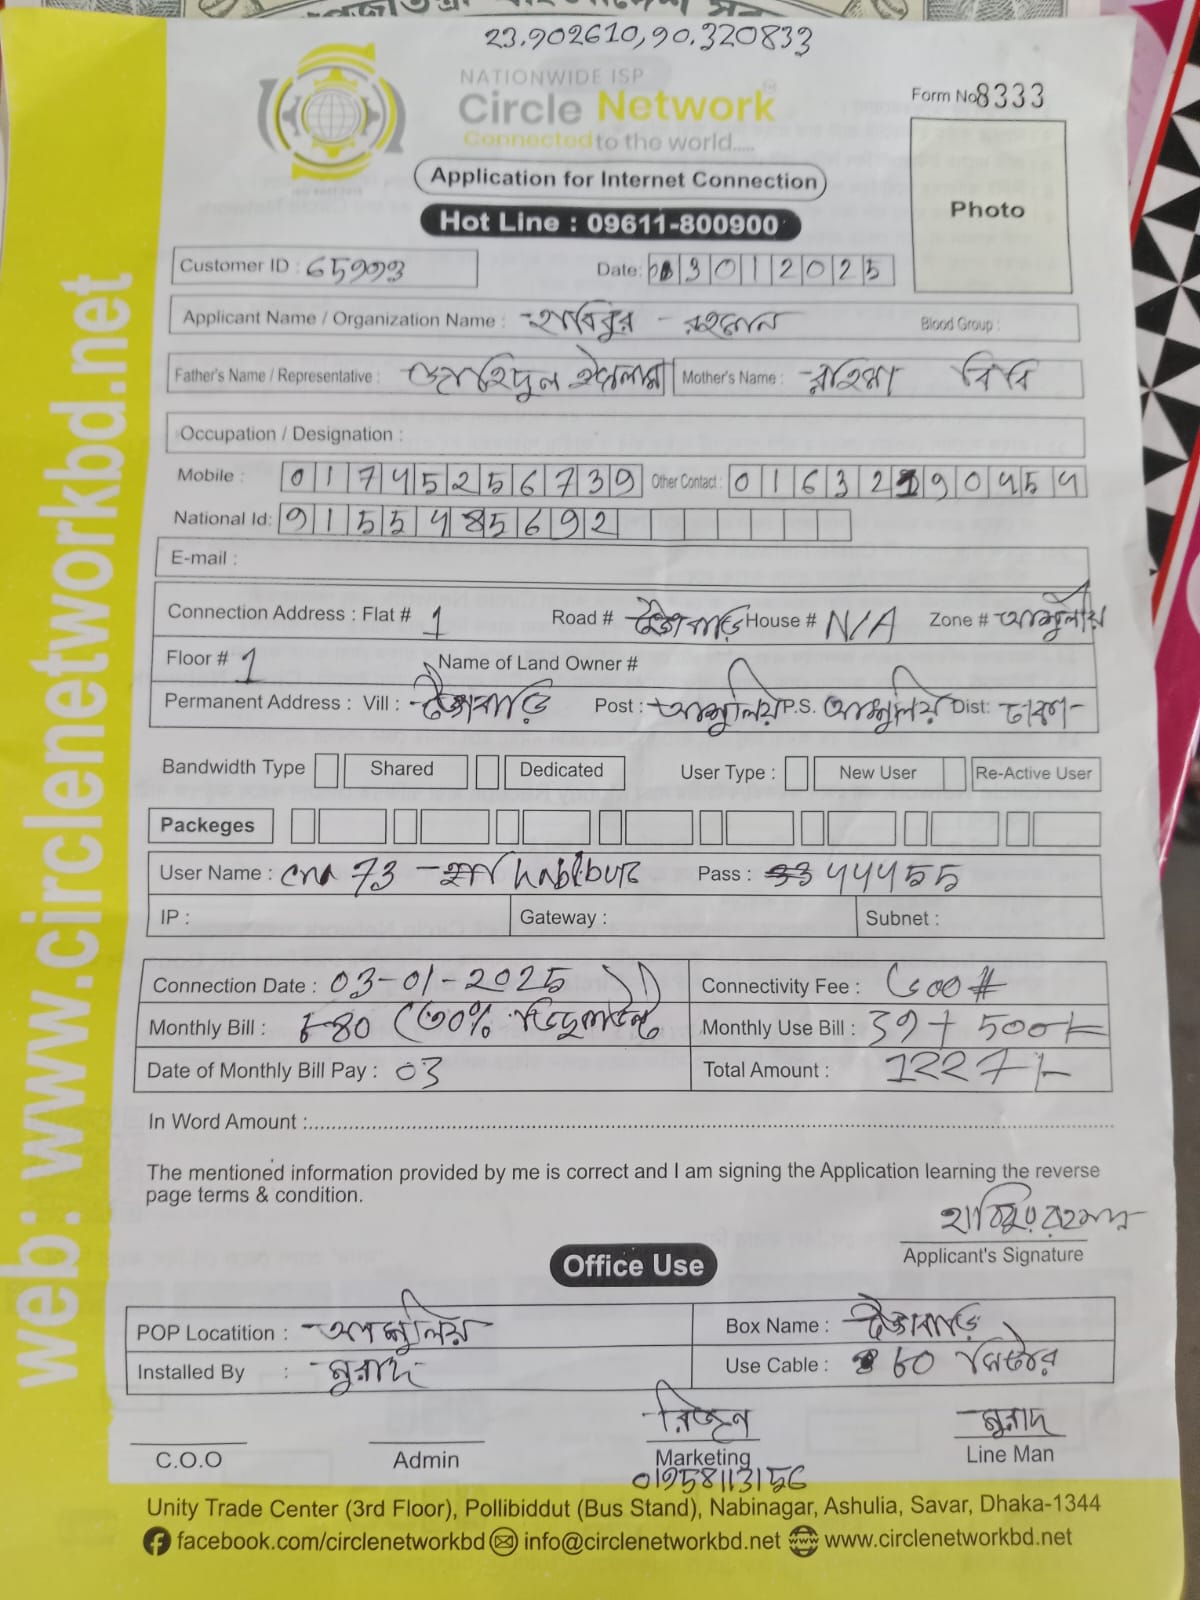 23.902610,90.320833
NATIONWIDE ISP
Circle Network
Connected to the world.....
Form No 8333
Application for Internet Connection
Photo
Hot Line : 09611-800900
Customer ID : 65993 Date: 3012025
Applicant Name / Organization Name : হাবিবুর রহমান Blood Group :
Father's Name / Representative : জাহিদুল ইসলাম Mother's Name : রহিমা বিবি
Occupation / Designation :
Mobile : 01745256739 Other Contact : 01632190454
National Id: 9155485692
E-mail :
Connection Address : Flat # 1 Road # House # N/A Zone # আশুলীয়
Floor # 1 Name of Land Owner #
Permanent Address : Vill : Post : আশুলিয়া P.S. আশুলিয়া Dist: ঢাকা
Bandwidth Type Shared Dedicated User Type : New User Re-Active User
Packeges
User Name : cnn 73 habibur Pass : 444455
IP : Gateway : Subnet :
Connection Date : 03-01-2025 Connectivity Fee :
Monthly Bill : 80 (30% Monthly Use Bill : 39+500
Date of Monthly Bill Pay : 03 Total Amount : 1227/-
In Word Amount :
The mentioned information provided by me is correct and I am signing the Application learning the reverse
page terms & condition.
হাবিবুর রহমান
Applicant's Signature
Office Use
POP Locatition : আশুলিয়া Box Name :
Installed By : মুরাদ Use Cable : 60 মিটার
মুরাদ
C.O.O Admin Marketing Line Man
01958113156
Unity Trade Center (3rd Floor), Pollibiddut (Bus Stand), Nabinagar, Ashulia, Savar, Dhaka-1344
facebook.com/circlenetworkbd info@circlenetworkbd.net www.circlenetworkbd.net
web: www.circlenetworkbd.net